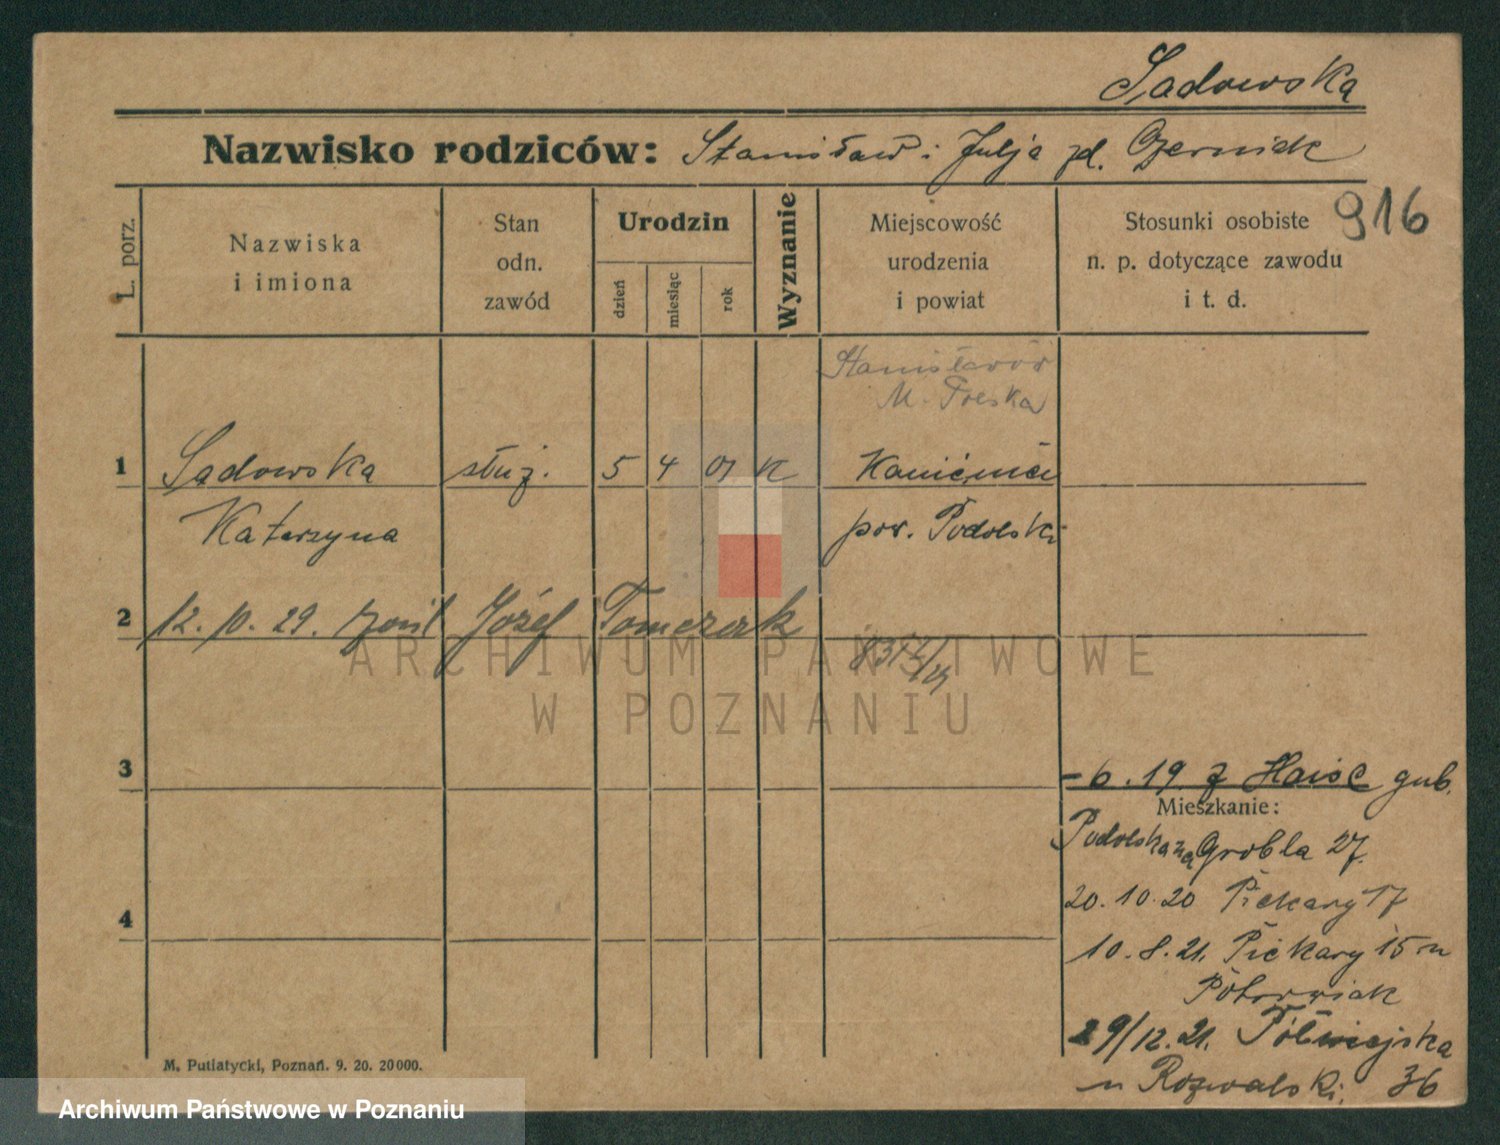 Sadowska
Nazwisko rodziców: Stanisław i Julja zd. Czerniak
916
L. porz.
Nazwiska
i imiona
Stan
odn.
zawód
Urodzin
dzień
miesiąc
rok
Wyznanie
Miejscowość
urodzenia
i powiat
Stosunki osobiste
n. p. dotyczące zawodu
i t. d.
Stanisławów
M. Polska
1 Sadowska służ. 5 4 01 K
Katarzyna pow. Podolski
2 12. 10. 29. Józef Tomczak
3
- 6. 19 z gub.
Mieszkanie:
Podolska Grobla 27.
20. 10. 20 Piekary 17
4
10. 8. 21. Piekary 15 u
29/12. 21. Półwiejska
u Rozwalski 36
M. Putiatycki, Poznań. 9. 20. 20000.
ARCHIWUM PAŃSTWOWE
W POZNANIU
Archiwum Państwowe w Poznaniu